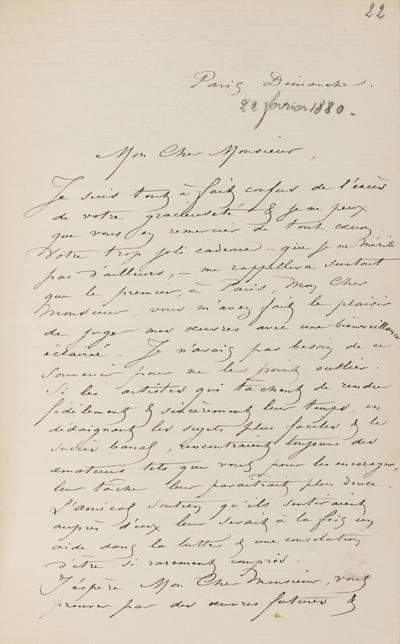 22
Paris Dimanche.
22 février 1880.
Mon Cher Monsieur,
Je suis tout à fait confus de l'excès
de votre gracieuseté & je ne peux
que vous en remercier de tout cœur.
Votre trop joli cadeau – que je ne mérite
pas d'ailleurs, – me rappellera surtout
que le premier, à Paris, Mon Cher
Monsieur, vous m'avez fait le plaisir
de juger mes œuvres avec une bienveillance
éclairée. Je n'avais pas besoin de ce
souvenir pour ne le point oublier.
Si les artistes qui tâchent de rendre
fidèlement & sincèrement leur temps, en
dédaignant les sujets plus faciles & le
succès banal, rencontraient toujours des
amateurs tels que vous pour les encourager,
leur tâche leur paraîtrait plus douce.
L'amical soutien qu'ils sentiraient
auprès d'eux leur serait à la fois un
aide dans la lutte & une consolation
d'être si rarement compris.
J'espère Mon Cher Monsieur, vous
prouver par des œuvres futures &